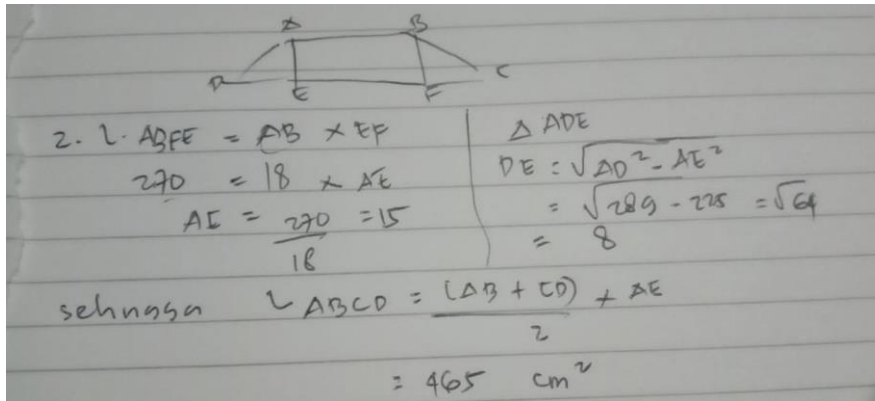 A B
D E F C
2. L. ABFE = AB × EF
270 = 18 × AE
AE = 270/18 = 15
△ ADE
DE = √AD² - AE²
= √289 - 225 = √64
= 8
sehngga L ABCD = (AB + CD)/2 × AE
= 465 cm²